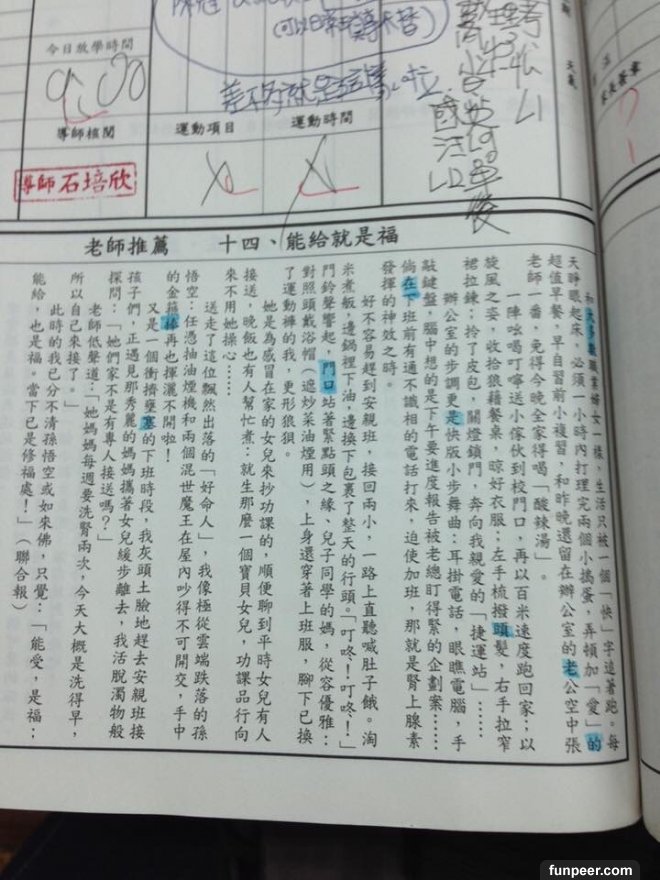 今日放學時間
9:00
導師核閱
導師石培欣
運動項目
運動時間
差不多就是這樣啦
(可以
家長簽章
天氣
老師推薦　十四、能給就是福
和大多數職業婦女一樣,生活只被一個「快」字追著跑。每
天睜眼起床,必須一小時內打理完兩個小搗蛋,弄頓加「愛」的
超值早餐,早自習前小複習,和昨晚還留在辦公室的老公空中張
老師一番,免得今晚全家得喝「酸辣湯」。
一陣吆喝叮嚀送小傢伙到校門口,再以百米速度跑回家;以
旋風之姿,收拾狼藉餐桌,晾好衣服;左手梳撥頭髮,右手拉窄
裙拉鍊;拎了皮包,關燈鎖門,奔向我親愛的「捷運站」……
辦公室的步調更是快版小步舞曲:耳掛電話,眼瞧電腦,手
敲鍵盤,腦中想的是下午要進度報告被老總盯得緊的企劃案……
倘在下班前有通不識相的電話打來,迫使加班,那就是腎上腺素
發揮的神效之時。
好不容易趕到安親班,接回兩小,一路上直聽喊肚子餓。淘
米煮飯,邊鍋裡下油,邊換下包裹了整天的行頭。「叮咚!叮咚!」
門鈴聲響起,門口站著緊點頭之緣、兒子同學的媽,從容優雅;
對照頭戴浴帽(遮炒菜油煙用),上身還穿著上班服,腳下已換
了運動褲的我,更形狼狽。
她是為感冒在家的女兒來抄功課的,順便聊到平時女兒有人
接送,晚飯也有人幫忙煮;就生那麼一個寶貝女兒,功課品行向
來不用她操心……
送走了這位飄然出落的「好命人」,我像極從雲端跌落的孫
悟空:任憑抽油煙機和兩個混世魔王在屋內吵得不可開交,手中
的金箍棒再也揮灑不開啦!
又是一個衝擠壅塞的下班時段,我灰頭土臉地趕去安親班接
孩子們,正遇見那秀麗的媽媽攜著女兒緩步離去,我活脫濁物般
探問:「她們家不是有專人接送嗎?」
老師低聲道:「她媽媽每週要洗腎兩次,今天大概是洗得早,
所以自己來接了。」
此時的我已分不清孫悟空或如來佛,只覺:「能愛,是福;
能給,也是福。當下已是修福處!」(聯合報)
funpeer.com